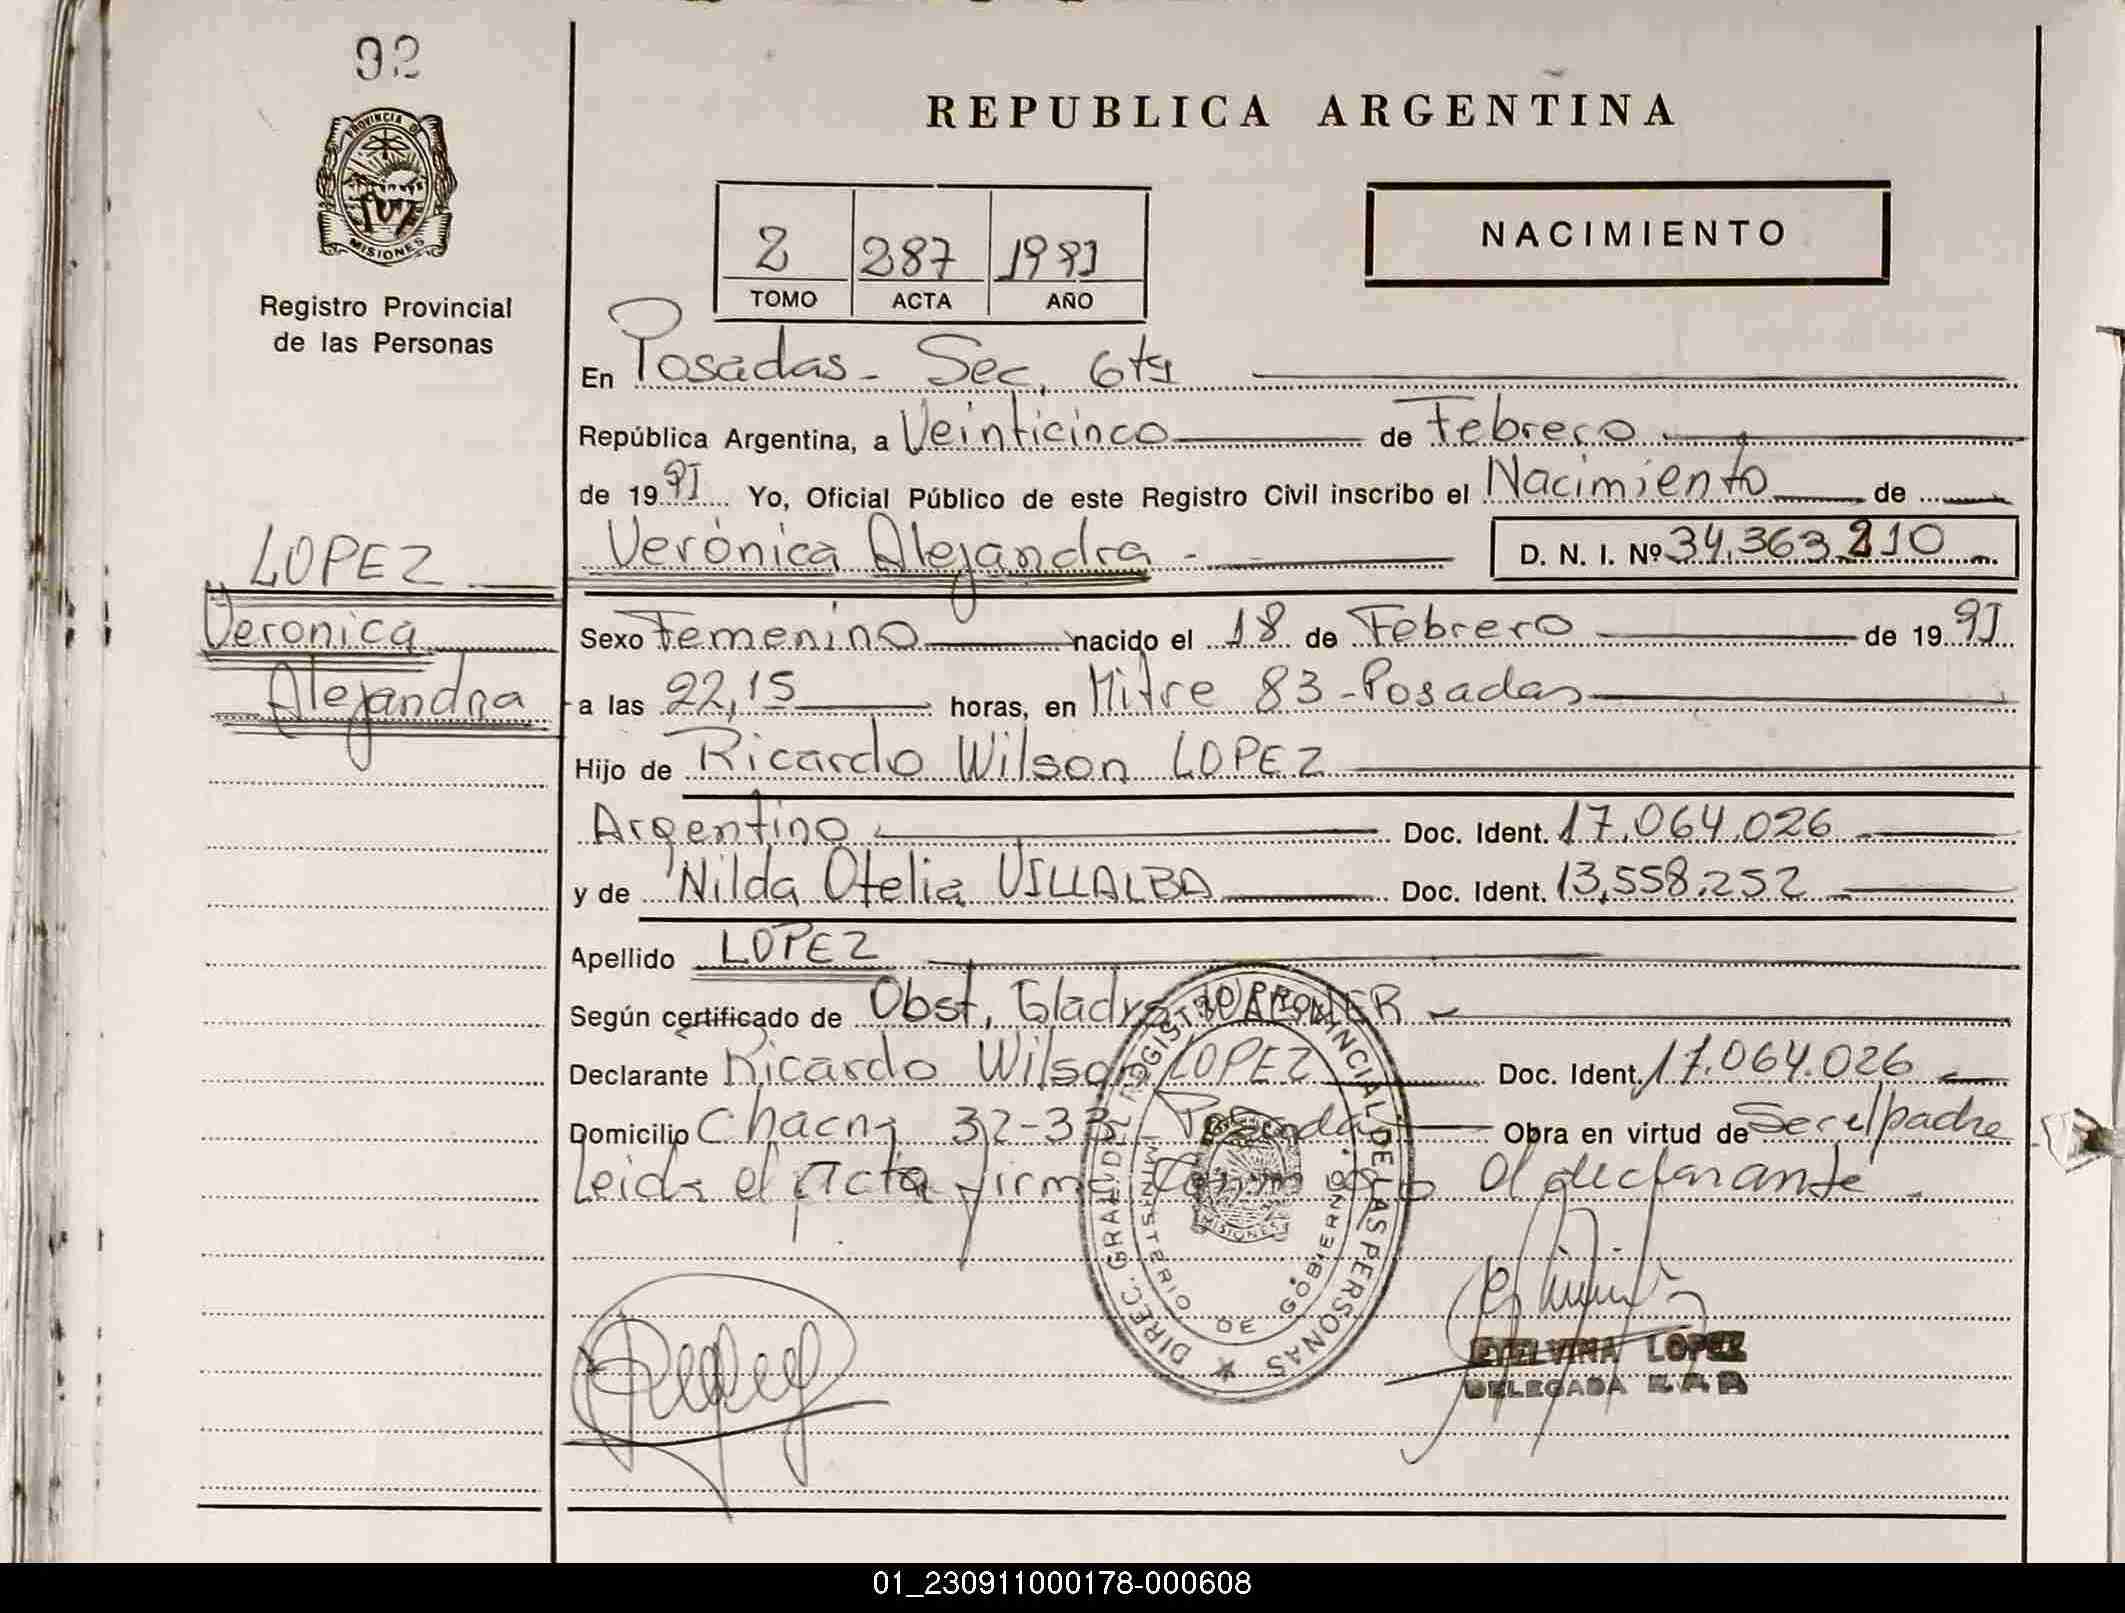 92
PROVINCIA DE
MISIONES
Registro Provincial
de las Personas
REPUBLICA ARGENTINA
2 287 1991
TOMO ACTA AÑO
NACIMIENTO
En Posadas - Sec. 6ta
República Argentina, a Veinticinco de Febrero
de 1991 Yo, Oficial Público de este Registro Civil inscribo el Nacimiento de
Verónica Alejandra - D. N. I. Nº 34.363.210
LOPEZ
Veronica
Alejandra
Sexo Femenino nacido el 18 de Febrero de 1991
a las 22,15 horas, en Mitre 83 - Posadas
Hijo de Ricardo Wilson LOPEZ
Argentino Doc. Ident. 17.064.026
y de Nilda Otelia VILLALBA Doc. Ident. 13,558.252
Apellido LOPEZ
Según certificado de Obst, Gladys
Declarante Ricardo Wilson LOPEZ Doc. Ident. 17.064.026
Domicilio Chacra 32-33 - Posadas Obra en virtud de Ser el padre
Leida el acta firma el declarante.
DIREC. GRAL. DEL REGISTRO PROVINCIAL DE LAS PERSONAS
MINISTERIO DE GOBIERNO
MISIONES
ETELVINA LOPEZ
DELEGADA
01_230911000178-000608